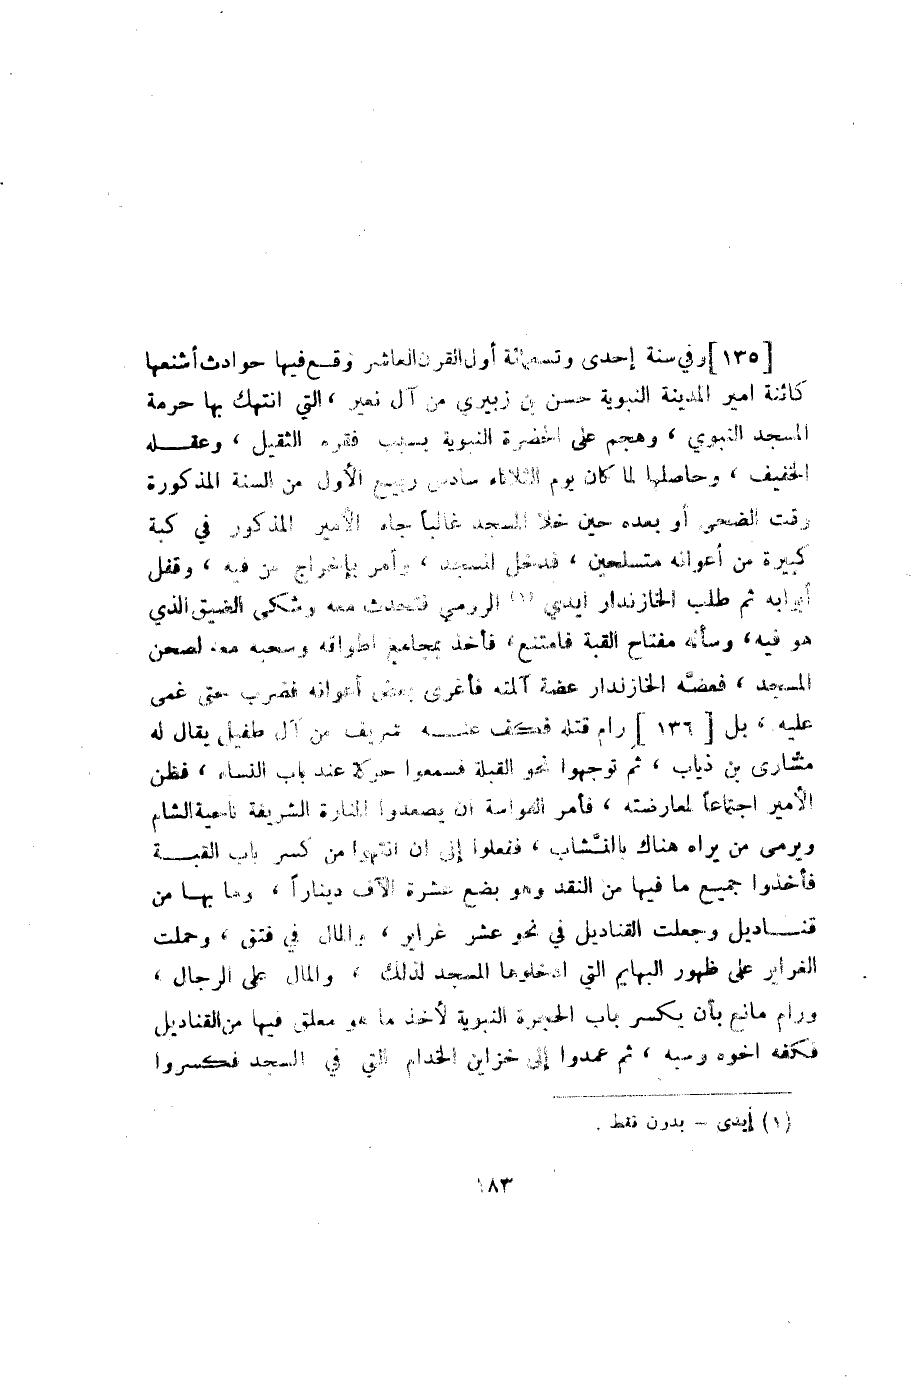 [١٣٥] وفي سنة إحدى وتسعمائة أول القرن العاشر وقع فيها حوادث أشنعها
كائنة امير المدينة النبوية حسن بن زبيري من آل نعير ، التي انتهك بها حرمة
المسجد النبوي ، وهجم على الحضرة النبوية بسبب فقره الثقيل ، وعقله
الخفيف ، وحاصلها لما كان يوم الثلاثاء سادس ربيع الأول من السنة المذكورة
وقت الضحى أو بعده حين خلا المسجد غالباً جاء الأمير المذكور في كبة
كبيرة من أعوانه متسلحين ، فدخل المسجد ، وأمر بإخراج من فيه ، وقفل
أبوابه ثم طلب الخازندار ايدي (١) الرومي فتحدث معه وشكى الضيق الذي
هو فيه، وسأله مفتاح القبة فامتنع، فأخذ بمجامع اطواقه وسحبه معه لصحن
المسجد ، فعضَّه الخازندار عضة آلمته فأغرى بعض أعوانه فضرب حتى غمى
عليه ، بل [١٣٦] رام قتله فكف عنه شريف من آل طفيل يقال له
مشارى بن ذياب ، ثم توجهوا نحو القبلة فسمعوا حركة عند باب النساء ، فظن
الأمير اجتماعاً لمعارضته ، فأمر القواسة ان يصعدوا المنارة الشريفة ناحية الشام
ويرمى من يراه هناك بالنشَّاب ، ففعلوا إلى ان انتهوا من كسر باب القبة
فأخذوا جميع ما فيها من النقد وهو بضع عشرة الآف ديناراً ، وما بها من
قناديل وجعلت القناديل في نحو عشر غراير ، والمال في فتق ، وحملت
الغراير على ظهور البهايم التي ادخلوها المسجد لذلك ، والمال على الرجال ،
ورام مانع بأن يكسر باب الحجرة النبوية لأخذ ما هو معلق فيها من القناديل
فكفه اخوه وسبه ، ثم عمدوا إلى خزاين الخدام التي في المسجد فكسروا
(١) إيدى - بدون نقط .
١٨٣